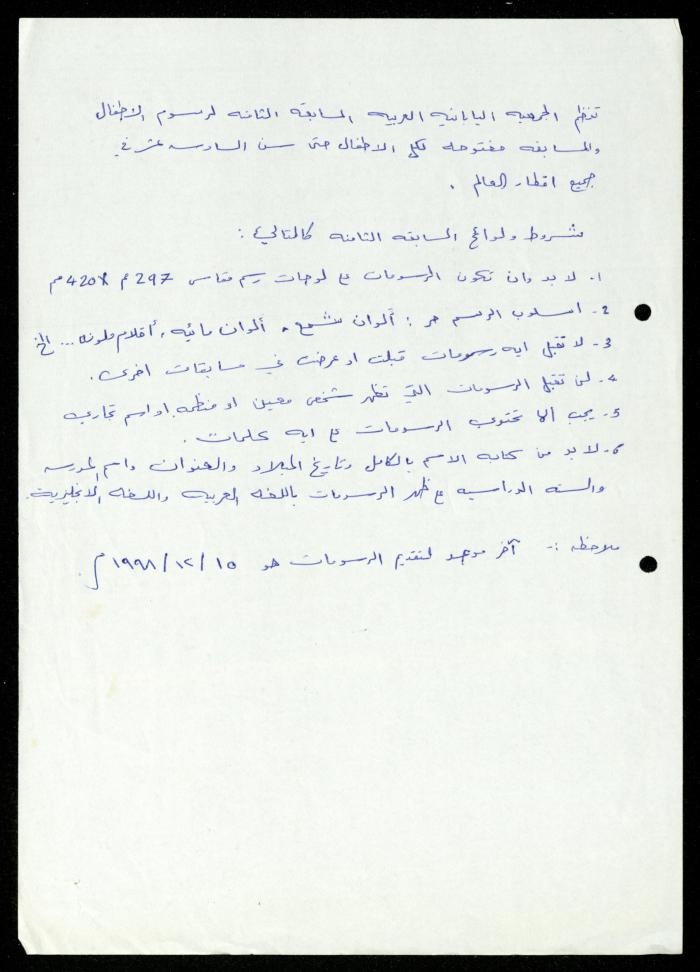 تنظم الجمعيه اليابانيه العربيه المسابقه الثامنه لرسوم الاطفال
والمسابقه مفتوحه لكل الاطفال حتى سن السادسه عشر في
جميع اقطار العالم .
شروط ولوائح المسابقه الثامنه كالتالي :
1. لا بد وان تكون الرسومات على لوحات رسم مقاس 297م x 420م
2. اسلوب الرسم حر : ألوان شمع ، ألوان مائيه ، أقلام ملونه ... الخ
3. لا تقبل ايه رسومات قبلت او عرضت في مسابقات اخرى .
4. لن تقبل الرسومات التي تظهر شخص معين او منظمه او اسم تجاري
5. يجب ألا تحتوي الرسومات على ايه كلمات .
6. لا بد من كتابه الاسم بالكامل وتاريخ الميلاد والعنوان واسم المدرسه
والسنه الدراسيه على ظهر الرسومات باللغه العربيه واللغه الانجليزية .
ملاحظه :- آخر موعد لتقديم الرسومات هو ١٥/١٢/١٩٩٨م .